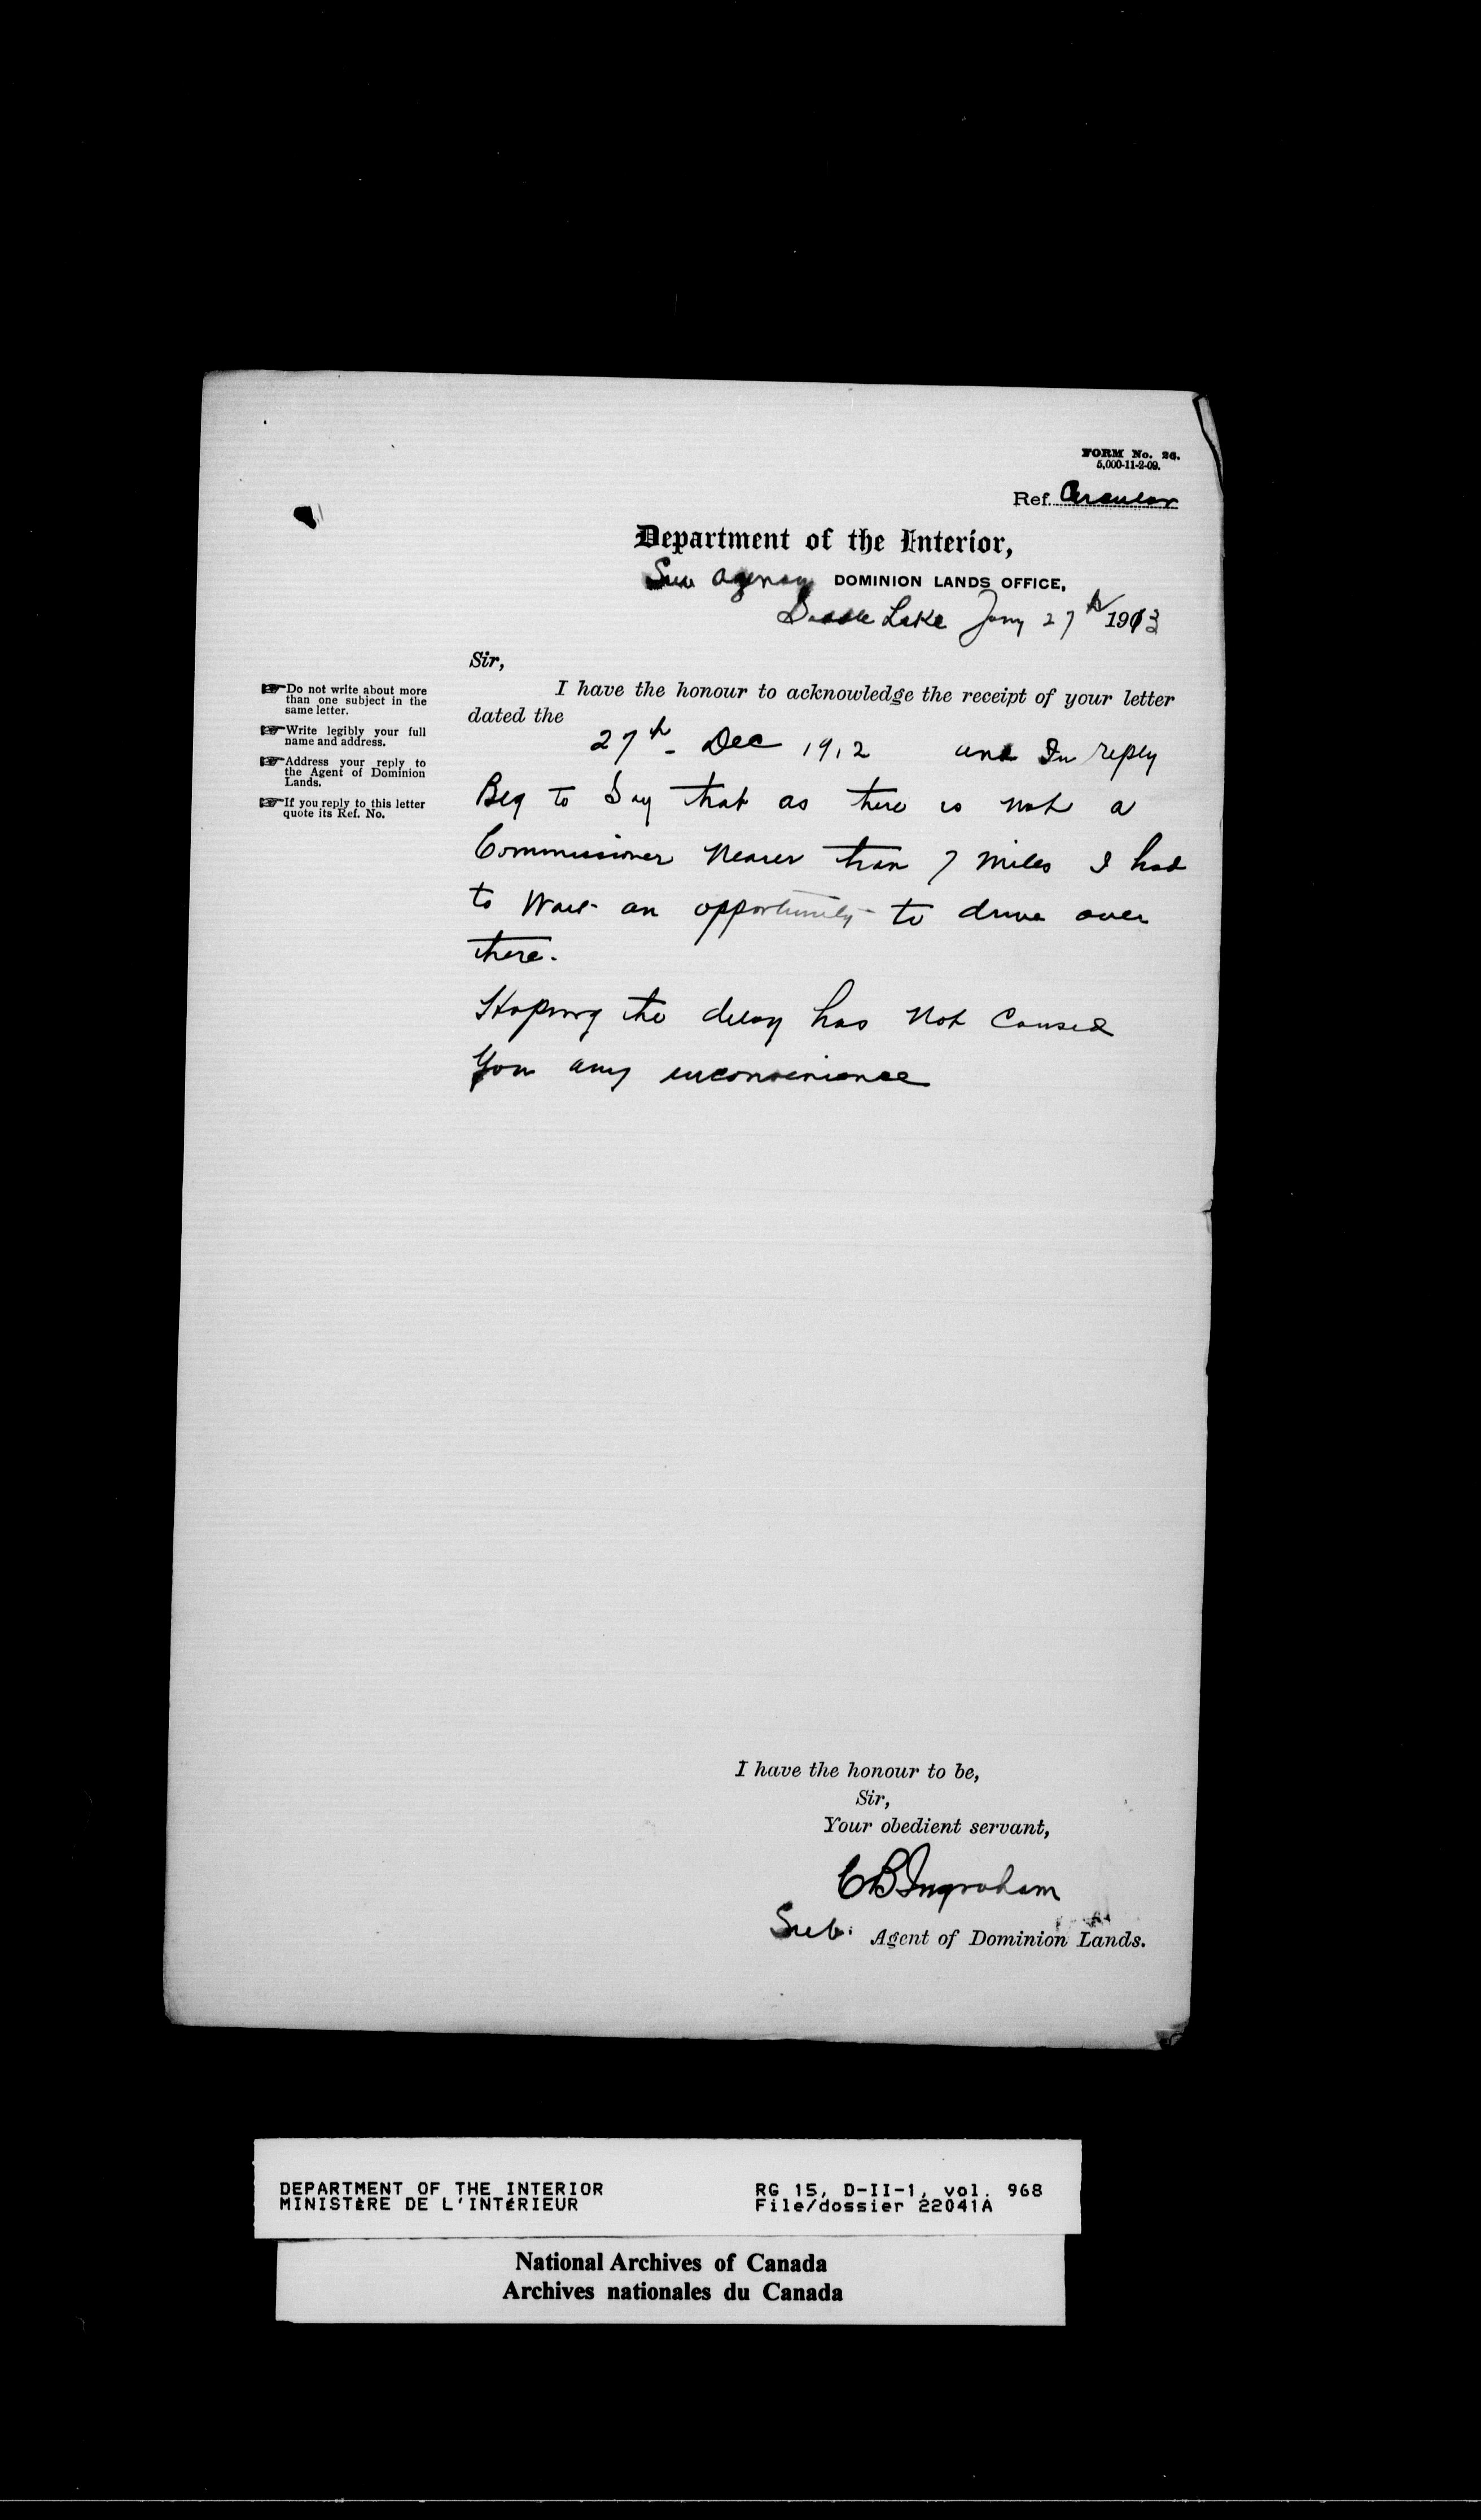 FORM No. 26.
5,000-11-2-09.
Ref. Circular
Department of the Interior,
Sub Agency DOMINION LANDS OFFICE,
Lake Jany 27th 1913
Sir,
I have the honour to acknowledge the receipt of your letter
dated the
27th Dec 1912 and In reply
Beg to Say that as there is not a
Commissioner Nearer than 7 miles I had
to Wait an opportunity to drive over
there.
Hoping the delay has Not Caused
You any inconvenience
Do not write about more
than one subject in the
same letter.
Write legibly your full
name and address.
Address your reply to
the Agent of Dominion
Lands.
If you reply to this letter
quote its Ref. No.
I have the honour to be,
Sir,
Your obedient servant,
C B Ingraham
Sub. Agent of Dominion Lands.
DEPARTMENT OF THE INTERIOR
MINISTÈRE DE L'INTÉRIEUR
RG 15, D-II-1, vol. 968
File/dossier 22041A
National Archives of Canada
Archives nationales du Canada